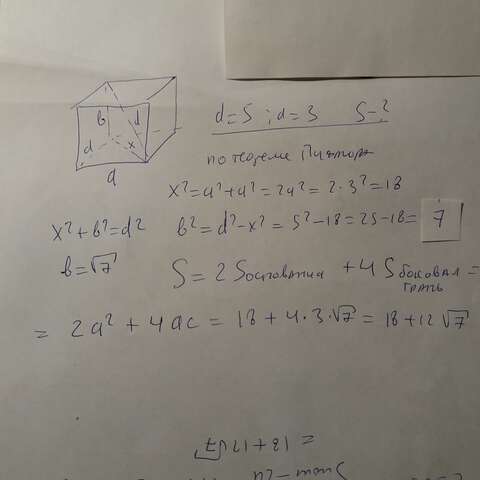 d=5; d=3 S-?
по теореме Пифагора
x²=a²+a²=2a²=2·3²=18
x²+b²=d² b²=d²-x²=5²-18=25-18=7
b=√7 S=2Sоснования +4S боковая грань =
= 2a²+4ac=18+4·3·√7=18+12√7
a
d
b
x
d
12√7+18=